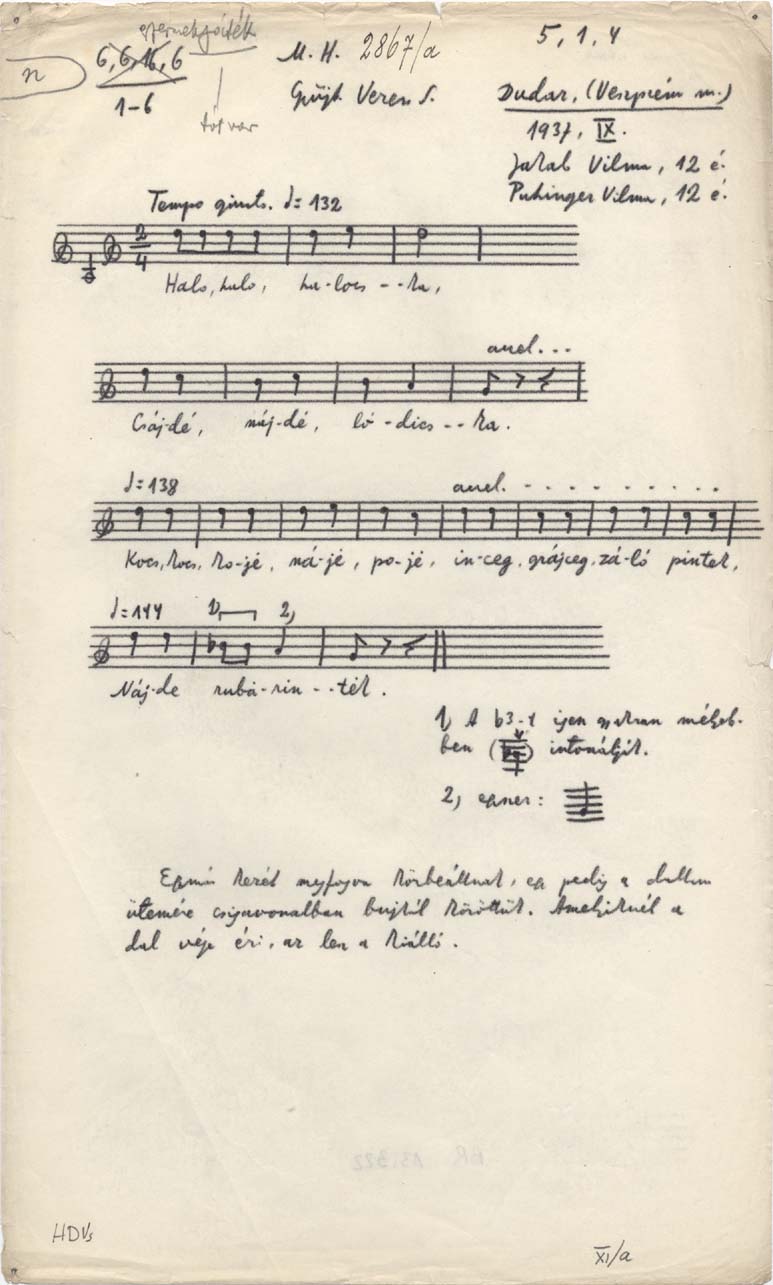 gyermekjáték
n
6,6,16,6
1-6
M. H. 2867/a
5, 1, 4
Gyűjt. Veress S.
Dudar, (Veszprém m.)
1937, IX.
Jakab Vilma, 12 é.
Puhinger Vilma, 12 é.
Tempo giusto. ♩= 132
2/4
Halo, halo, ha-locs--ka,
accel...
Csáj-dé, náj-dé, ló-dics--ka.
♩=138 accel. . . . . . . . .
Kocs, kocs, ko-jé, ná-jé, po-jé, in-ceg, grájceg, zá-ló pintek,
♩=144 1, 2,
Náj-de rubá-rin--tek.
1, A b3-t igen gyakran mélyeb-
ben ( ) intonálják.
2, egyszer:
Egymás kezét megfogva körbeállnak, egy pedig a dallam
ütemére csigavonalban bujkál közöttük. Amelyiknél a
dal vége éri, az lesz a kiálló.
BR 13.322
HDVs
XI/a